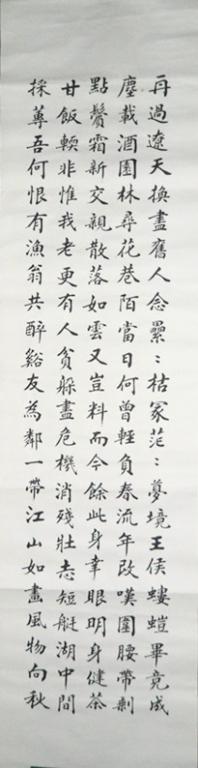 再過遼天換盡舊人念纍〻枯冢茫〻夢境王侯螻螘畢竟成
塵載酒園林尋花巷陌當日何曾輕負春流年改嘆圍腰帶剩
點鬢霜新交親散落如雲又豈料而今餘此身幸眼明身健茶
甘飯輭非惟我老更有人貧躱盡危機消殘壯志短艇湖中間
採蓴吾何恨有漁翁共醉谿友為鄰一帶江山如畫風物向秋